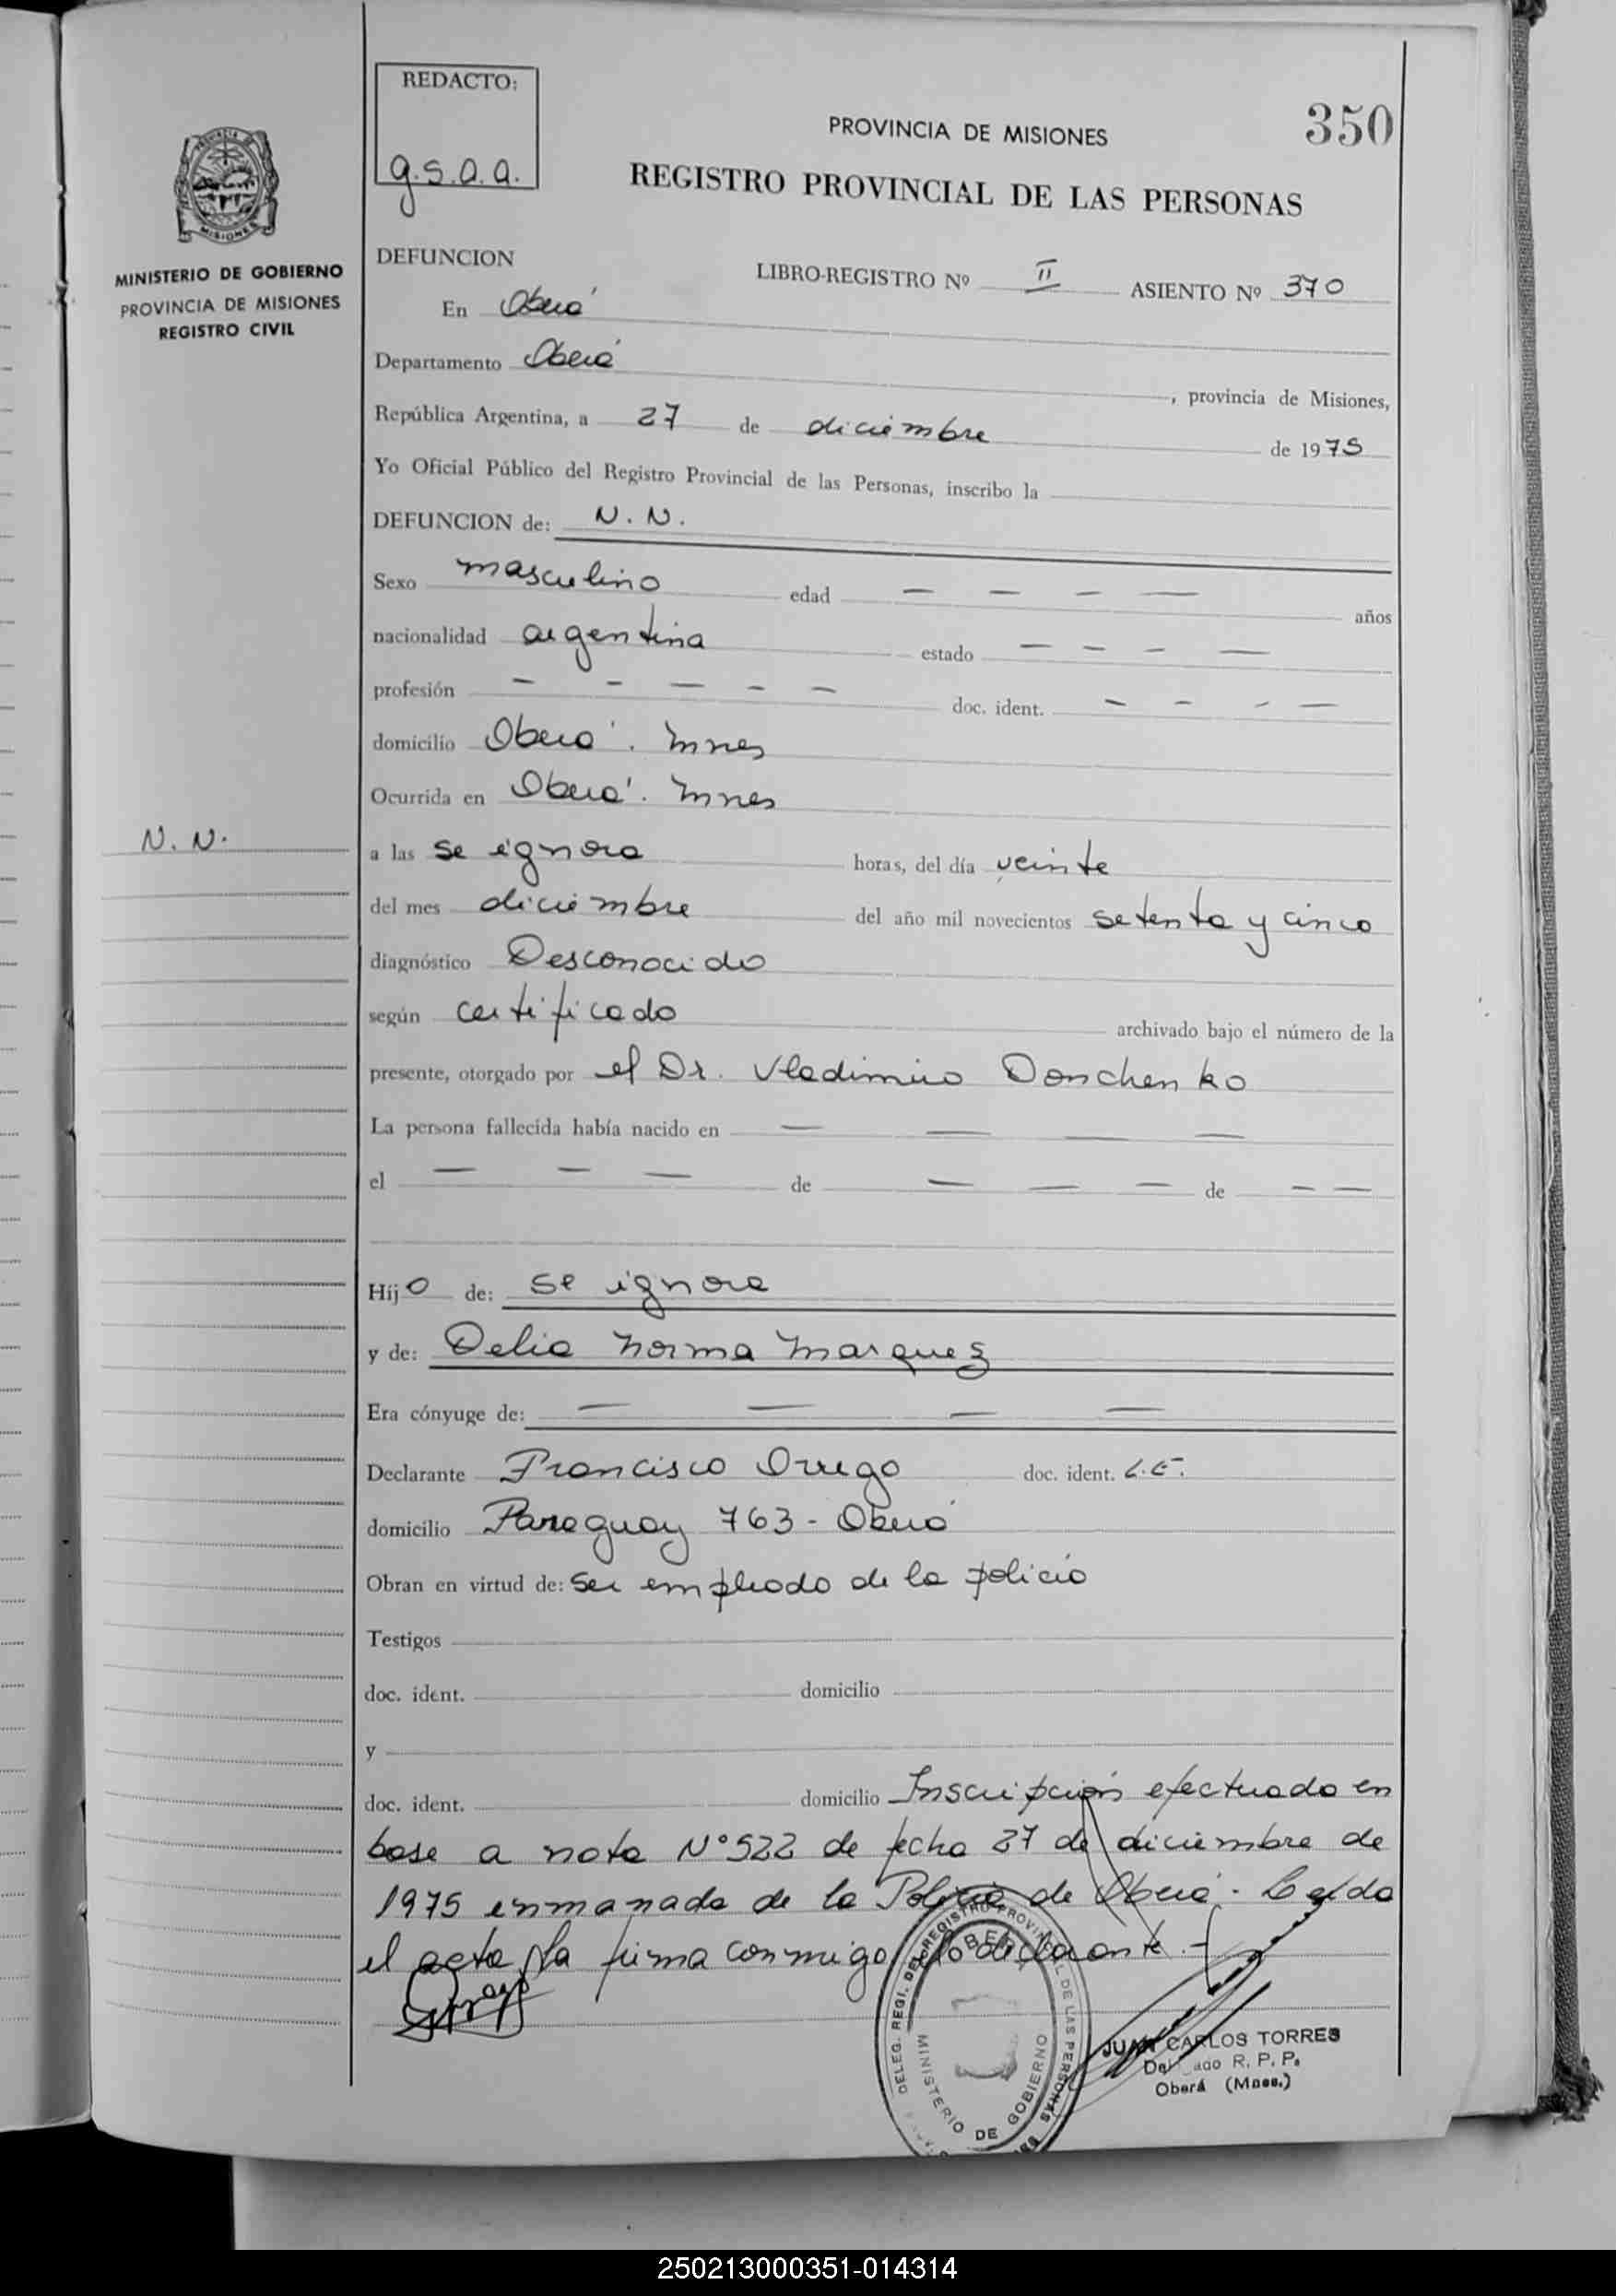 REDACTO:
g.s.a.a.
350
PROVINCIA DE MISIONES
REGISTRO PROVINCIAL DE LAS PERSONAS
MISIONES
MINISTERIO DE GOBIERNO
PROVINCIA DE MISIONES
REGISTRO CIVIL
DEFUNCION
LIBRO-REGISTRO Nº II ASIENTO Nº 370
En Oberá
Departamento Oberá , provincia de Misiones,
República Argentina, a 27 de diciembre de 1975
Yo Oficial Público del Registro Provincial de las Personas, inscribo la
DEFUNCION de: N. N.
Sexo masculino edad — — — — años
nacionalidad argentina estado — — — —
profesión — — — — — doc. ident. — — — —
domicilio Oberá. Mnes
Ocurrida en Oberá. Mnes
N. N.
a las se ignora horas, del día veinte
del mes diciembre del año mil novecientos setenta y cinco
diagnóstico Desconocido
según certificado archivado bajo el número de la
presente, otorgado por el Dr. Vladimiro Donchenko
La persona fallecida había nacido en — — — —
el — — — de — — — de — —
Hijo de: se ignora
y de: Delia Norma Marquez
Era cónyuge de: — — — —
Declarante Francisco Orrego doc. ident. L.E.
domicilio Paraguay 763 - Oberá
Obran en virtud de: ser empleado de la policia
Testigos
doc. ident. domicilio
y
doc. ident. domicilio Inscripción efectuada en
base a nota Nº 522 de fecha 27 de diciembre de
1975 enmanada de la Policia de Oberá - Leída
el acta, la firma conmigo el declarante. -
DELEG. REGI. DEL REGISTRO PROVINCIAL DE LAS PERSONAS
OBERA
MINISTERIO DE GOBIERNO
JUAN CARLOS TORRES
Delegado R. P. P.
Oberá (Mnes.)
250213000351-014314